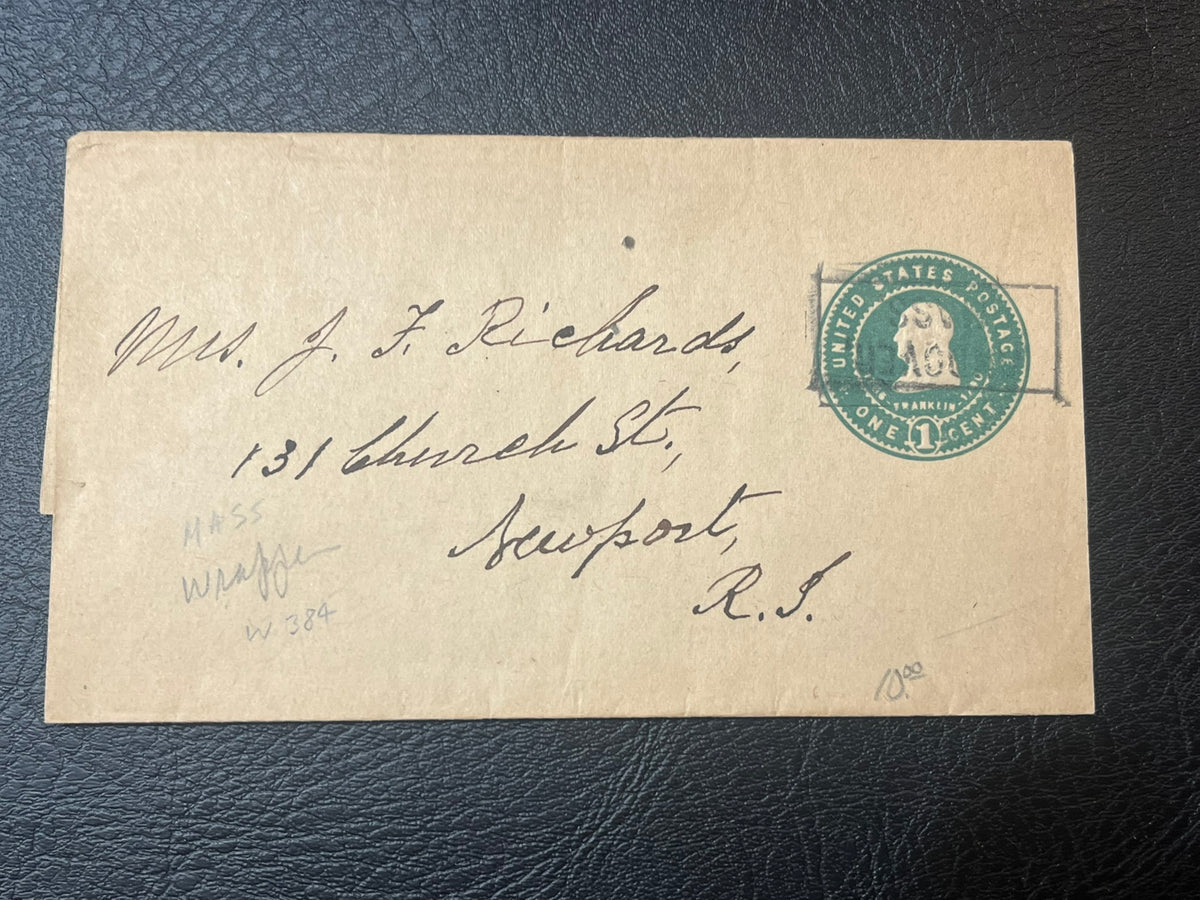 Mrs. J. F. Richards,
131 Church St.,
Newport,
R.I.
UNITED STATES POSTAGE
FRANKLIN
ONE 1 CENT
MASS
Wrapper
W 384
10.00